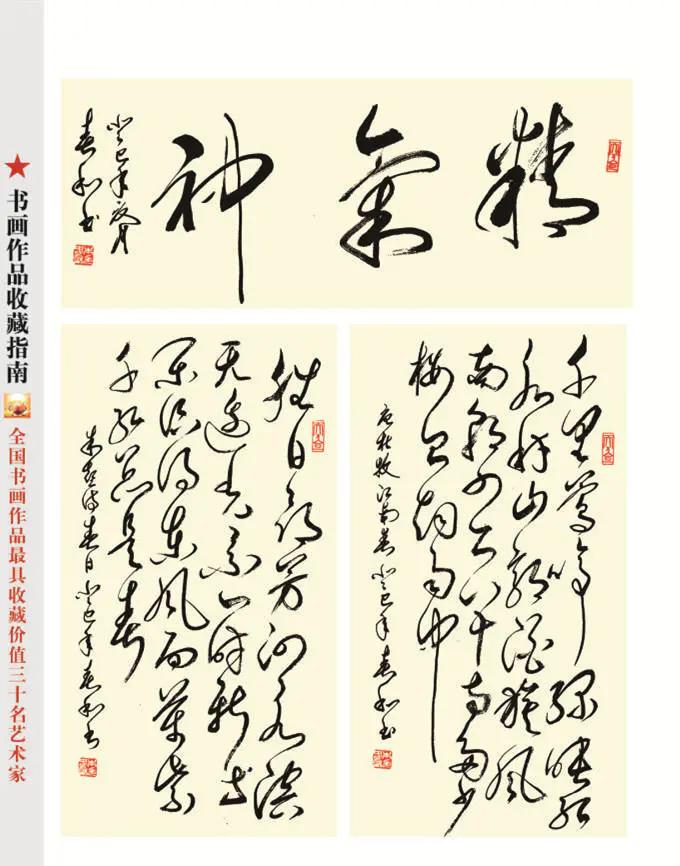 书画作品收藏指南
全国书画作品最具收藏价值三十名艺术家
精氣神
癸巳年夏月
春和书
千里莺啼绿映红
水村山郭酒旗风
南朝四百八十寺多少
楼台烟雨中
唐杜牧江南春癸巳年春和书
胜日寻芳泗水滨
无边光景一时新等
闲识得东风面万紫
千红总是春
朱熹诗春日癸巳年春和书